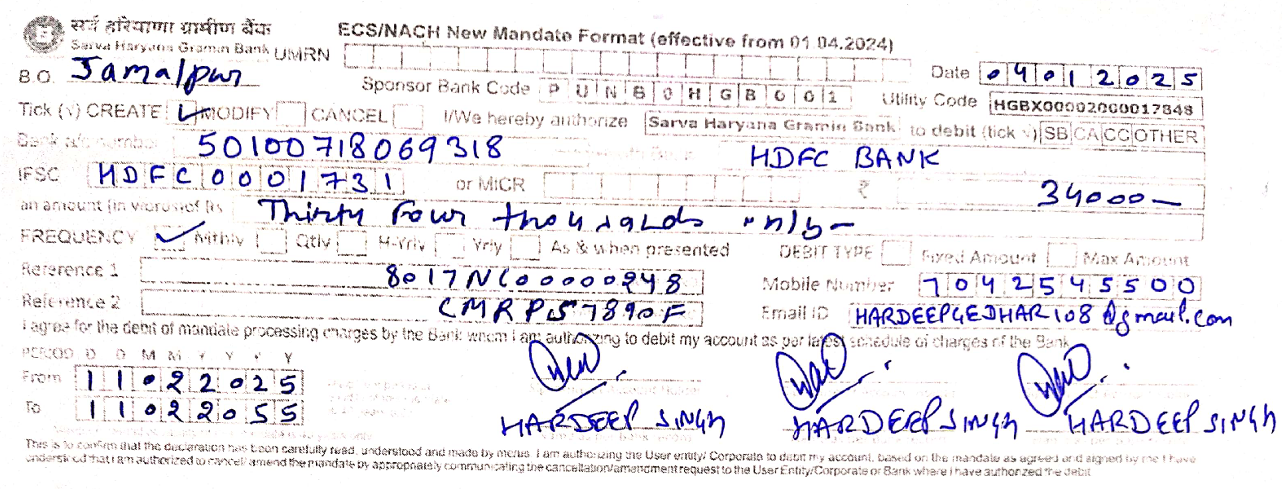 सर्व हरियाणा ग्रामीण बैंक
Sarva Haryana Gramin Bank UMRN
ECS/NACH New Mandate Format (effective from 01.04.2024)
B.O. Jamalpur Sponsor Bank Code PUNB0HGB001 Date 04012025
Utility Code HGBX00002000017848
Tick (√) CREATE MODIFY CANCEL I/We hereby authorize Sarva Haryana Gramin Bank to debit (tick √) SB CA CC OTHER
Bank a/c number 50100718069318 HDFC BANK
IFSC HDFC0001731 or MICR ₹ 34000—
an amount (in words) of Rs Thirty Four thousands only-
FREQUENCY Mthly Qtly H-Yrly Yrly As & when presented DEBIT TYPE Fixed Amount Max Amount
Reference 1 8017NC00000248 Mobile Number 7042545500
Reference 2 CMRPS7890F Email ID HARDEEPGEDHAR108@gmail.com
I agree for the debit of mandate processing charges by the Bank whom I am authorizing to debit my account as per latest schedule of charges of the Bank
PERIOD D D M M Y Y Y Y
From 11022025
To 11022055
HARDEEP SINGH HARDEEP SINGH HARDEEP SINGH
This is to confirm that the declaration has been carefully read, understood and made by me/us. I am authorizing the User entity/ Corporate to debit my account, based on the mandate as agreed and signed by me I have
understood that I am authorized to cancel/ amend the mandate by appropriately communicating the cancellation/amendment request to the User Entity/Corporate or Bank where I have authorized the debit